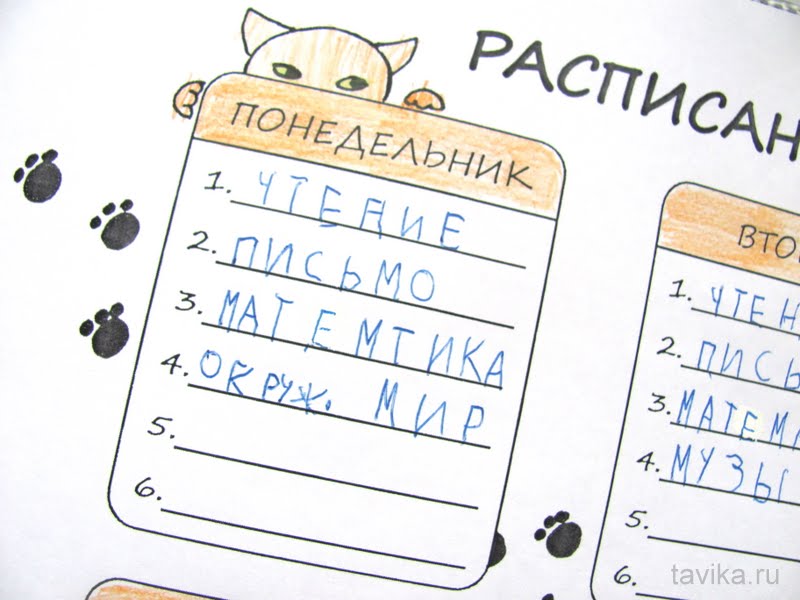 РАСПИСАН
ПОНЕДЕЛЬНИК
1. ЧТЕНИЕ
2. ПИСЬМО
3. МАТЕМТИКА
4. ОКРУЖ. МИР
5.
6.
ВТО
1. ЧТЕН
2. ПИСЬ
3. МАТЕМА
4. МУЗЫ
5.
6.
tavika.ru